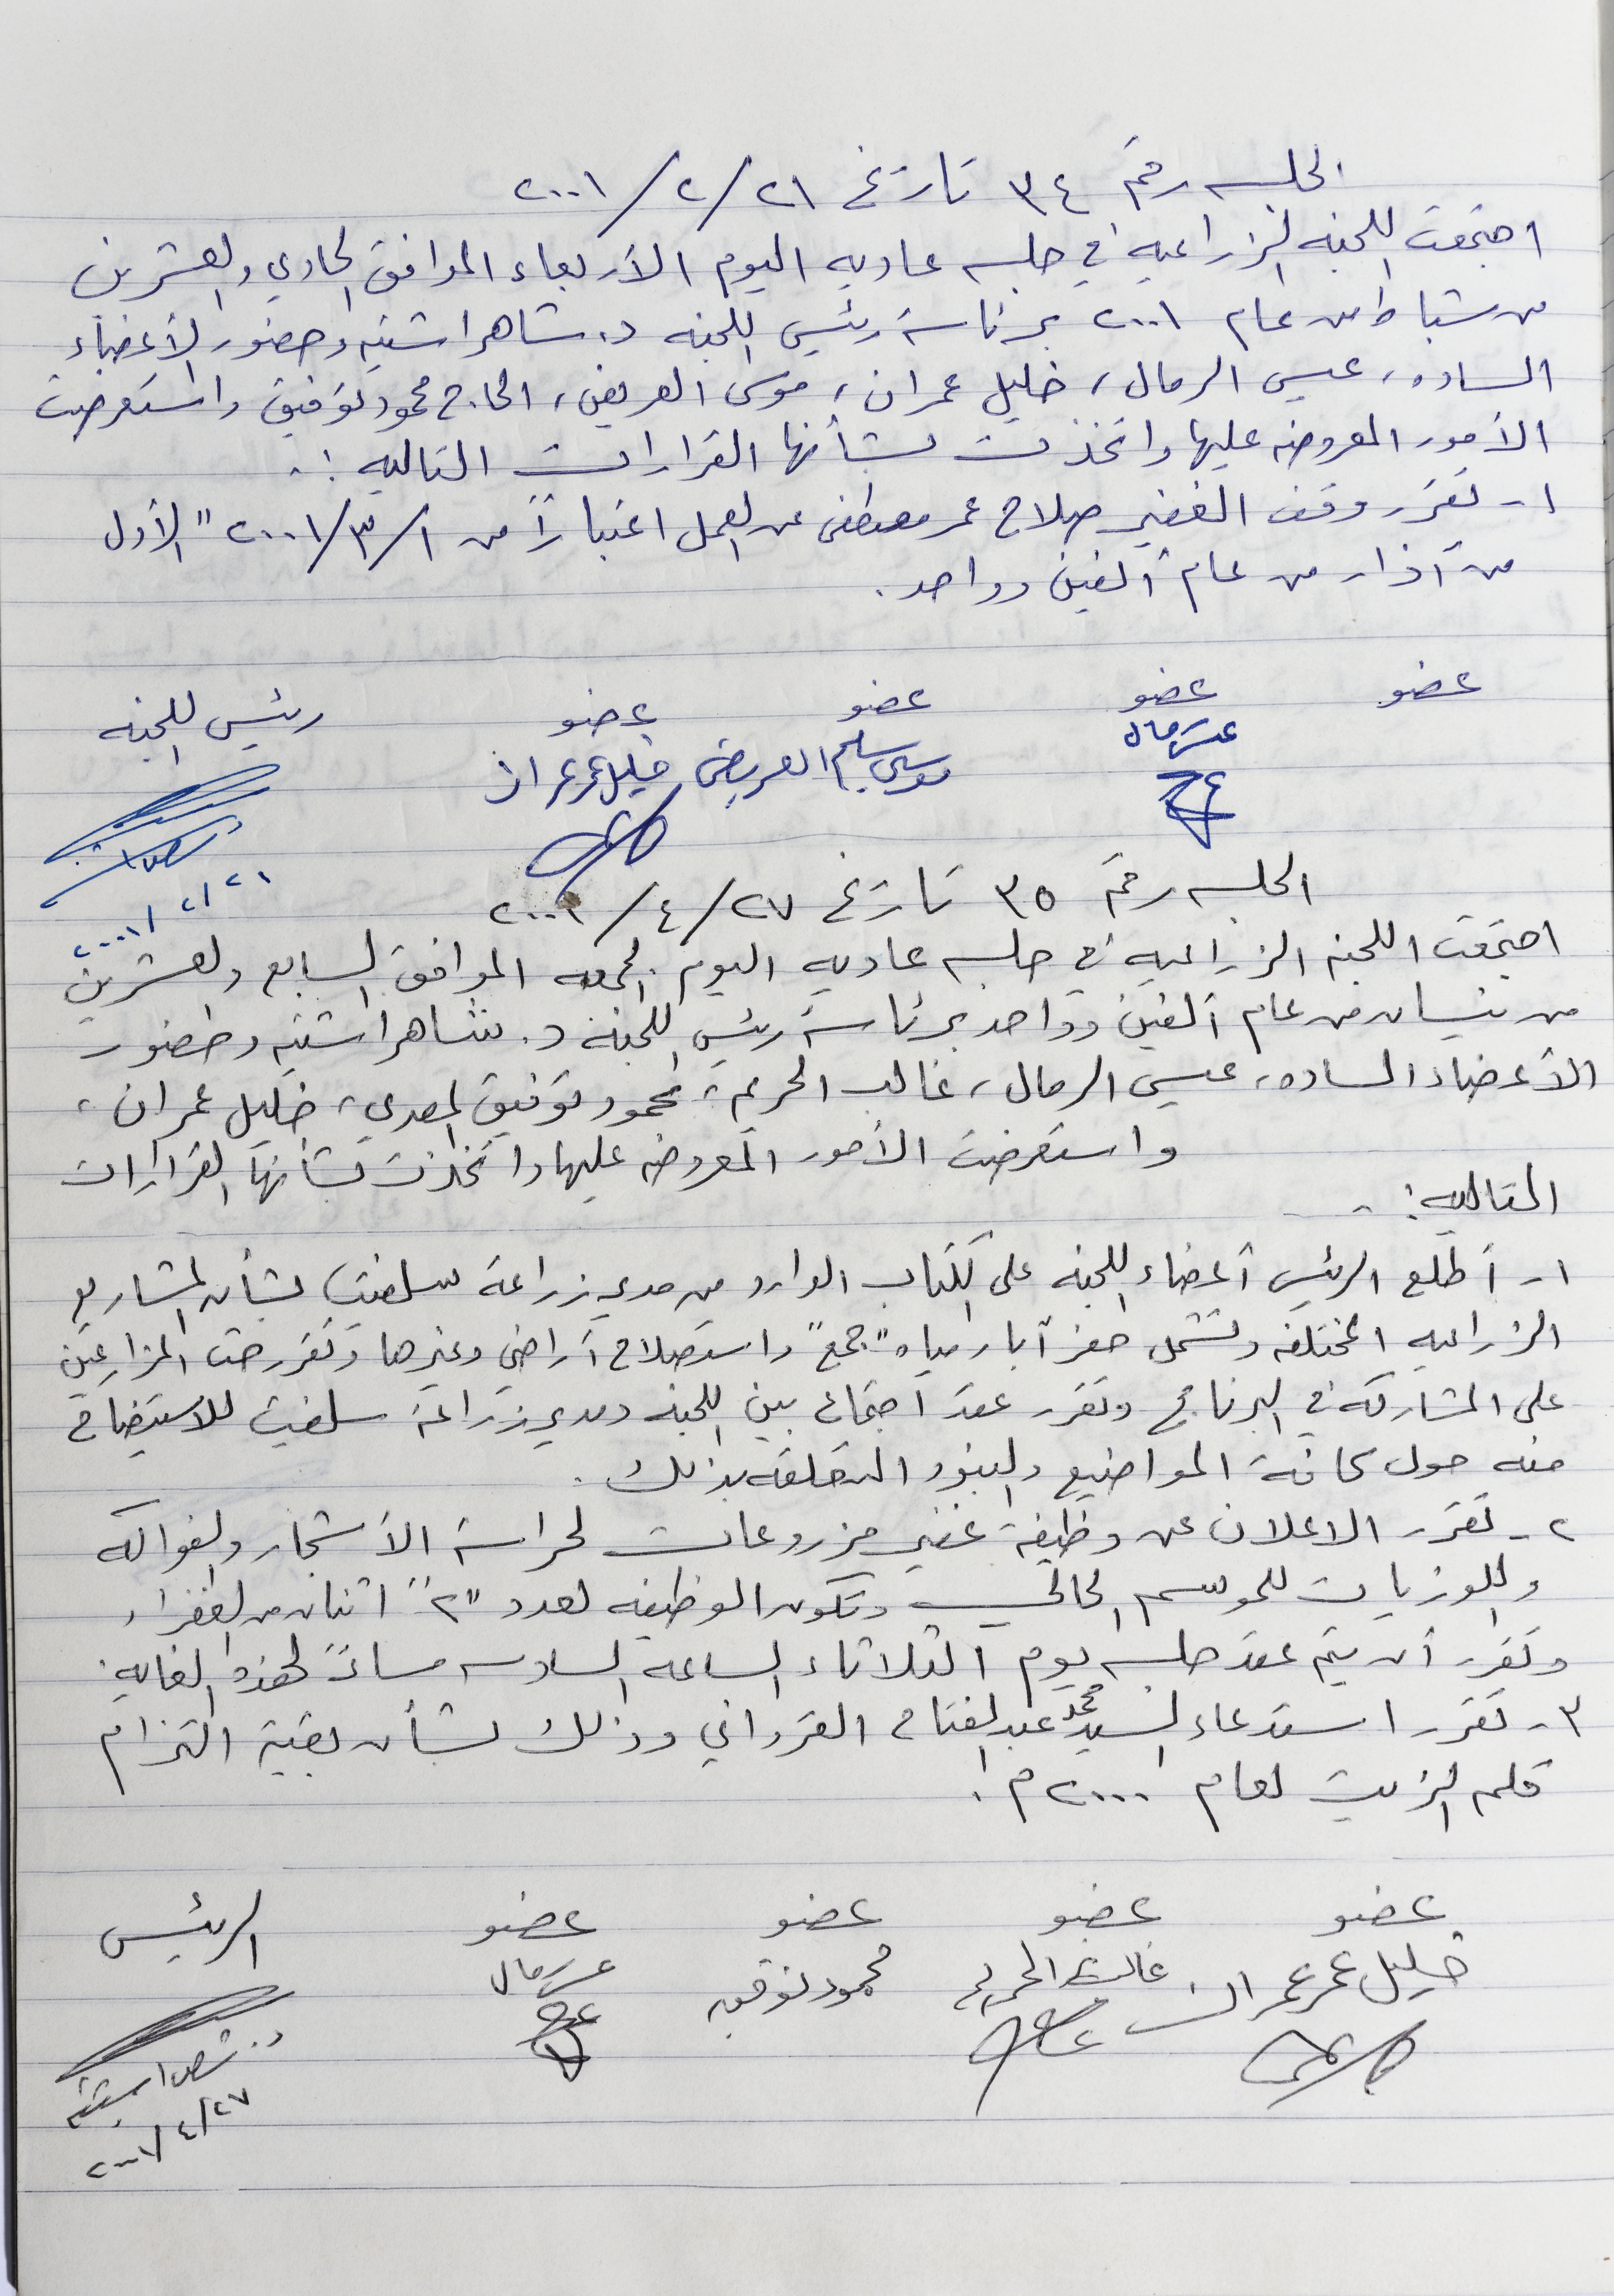 الجلسه رقم ٣٤ تاريخ ٢١/٢/٢٠٠١
اجتمعت اللجنه الزراعيه في جلسه عاديه اليوم الأربعاء الموافق الحادي والعشرين
من شباط من عام ٢٠٠١ برئاسة رئيس اللجنه د. شاهر اشتيه وحضور الأعضاء
الساده، عيسى الرمال، خليل عمران، موسى العريض، الحاج محمود توفيق واستعرضت
الأمور المعروضه عليها واتخذت بشأنها القرارات التاليه :-
١- تقرر وقف الغفير صلاح عمر مصطفى عن العمل اعتباراً من ١/٣/٢٠٠١ " الأول
من آذار من عام ألفين وواحد.
عضو عضو عضو عضو رئيس اللجنه
موسى سليم العريض خليل عمر عمران
٢١/٢/٢٠٠١
الجلسه رقم ٣٥ تاريخ ٢٧/٤/٢٠٠١
اجتمعت اللجنه الزراعيه في جلسه عاديه اليوم الجمعه الموافق السابع والعشرين
من نيسان من عام ألفين وواحد برئاسة رئيس اللجنه د. شاهر اشتيه وحضور
الأعضاء الساده، عيسى الرمال، غالب الحريم، محمود توفيق المصري، خليل عمران،
واستعرضت الأمور المعروضه عليها واتخذت بشأنها القرارات
التاليه :-
١- أطلع الرئيس أعضاء اللجنه على الكتاب الوارد من مدير زراعة سلفيت بشأن المشاريع
الزراعيه المختلفه وتشمل حفر آبار مياه "جمع" واستصلاح أراضي وغيرها وتقرر حث المزارعين
على المشاركه في البرنامج وتقرر عقد اجتماع بين اللجنه ومدير زراعة سلفيت للاستيضاح
منه حول كافة المواضيع والبنود المتعلقه بذلك.
٢- تقرر الاعلان عن وظيفة غفير مزروعات لحراسة الأشجار والفواكه
واللوزيات للموسم الحالي وتكون الوظيفه لعدد "٢" اثنان من الغفراء
وتقرر أن يتم عقد جلسه يوم الثلاثاء الساعه السادسه مساءً لهذه الغايه.
٣- تقرر استدعاء السيد محمد عبد الفتاح القرواني وذلك بشأن بقية التزام
قلم الزيت لعام ٢٠٠٠م.
عضو عضو عضو عضو الرئيس
خليل عمر عمران غالب الحريم محمود توفيق
د. شاهر اشتيه
٢٧/٤/٢٠٠١